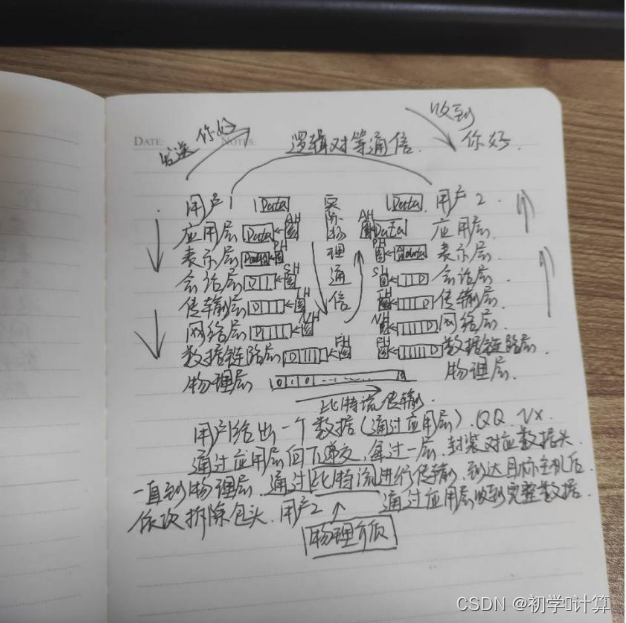 DATE: NOTES:
发送 你好
收到
你好.
逻辑对等通信.
用户1 Data Data 用户2
应用层 Data AH AH Data 应用层.
表示层 Data PH PH Data 表示层.
会话层 SH SH D 会话层
传输层 D TH TH D 传输层.
网络层 D NH NH D 网络层.
数据链路层 D 数据链路层
物理层 物理层.
实际物理通信
比特流传输
用户1给出一个数据(通过应用层). QQ VX.
通过应用层向下递交, 每过一层, 封装对应数据头.
一直到物理层, 通过比特流进行传输, 到达目标主机后
依次拆除包头. 用户2 通过应用层收到完整数据.
物理介质
CSDN @初学 计算